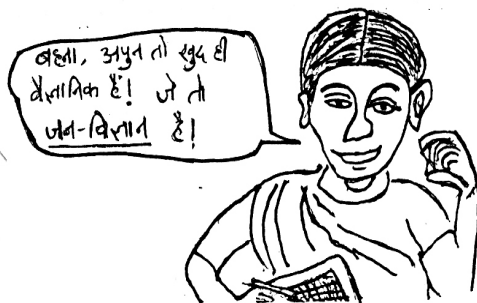 बहना, अपुन तो खुद ही
वैज्ञानिक हैं! जे तो
जन-विज्ञान है!